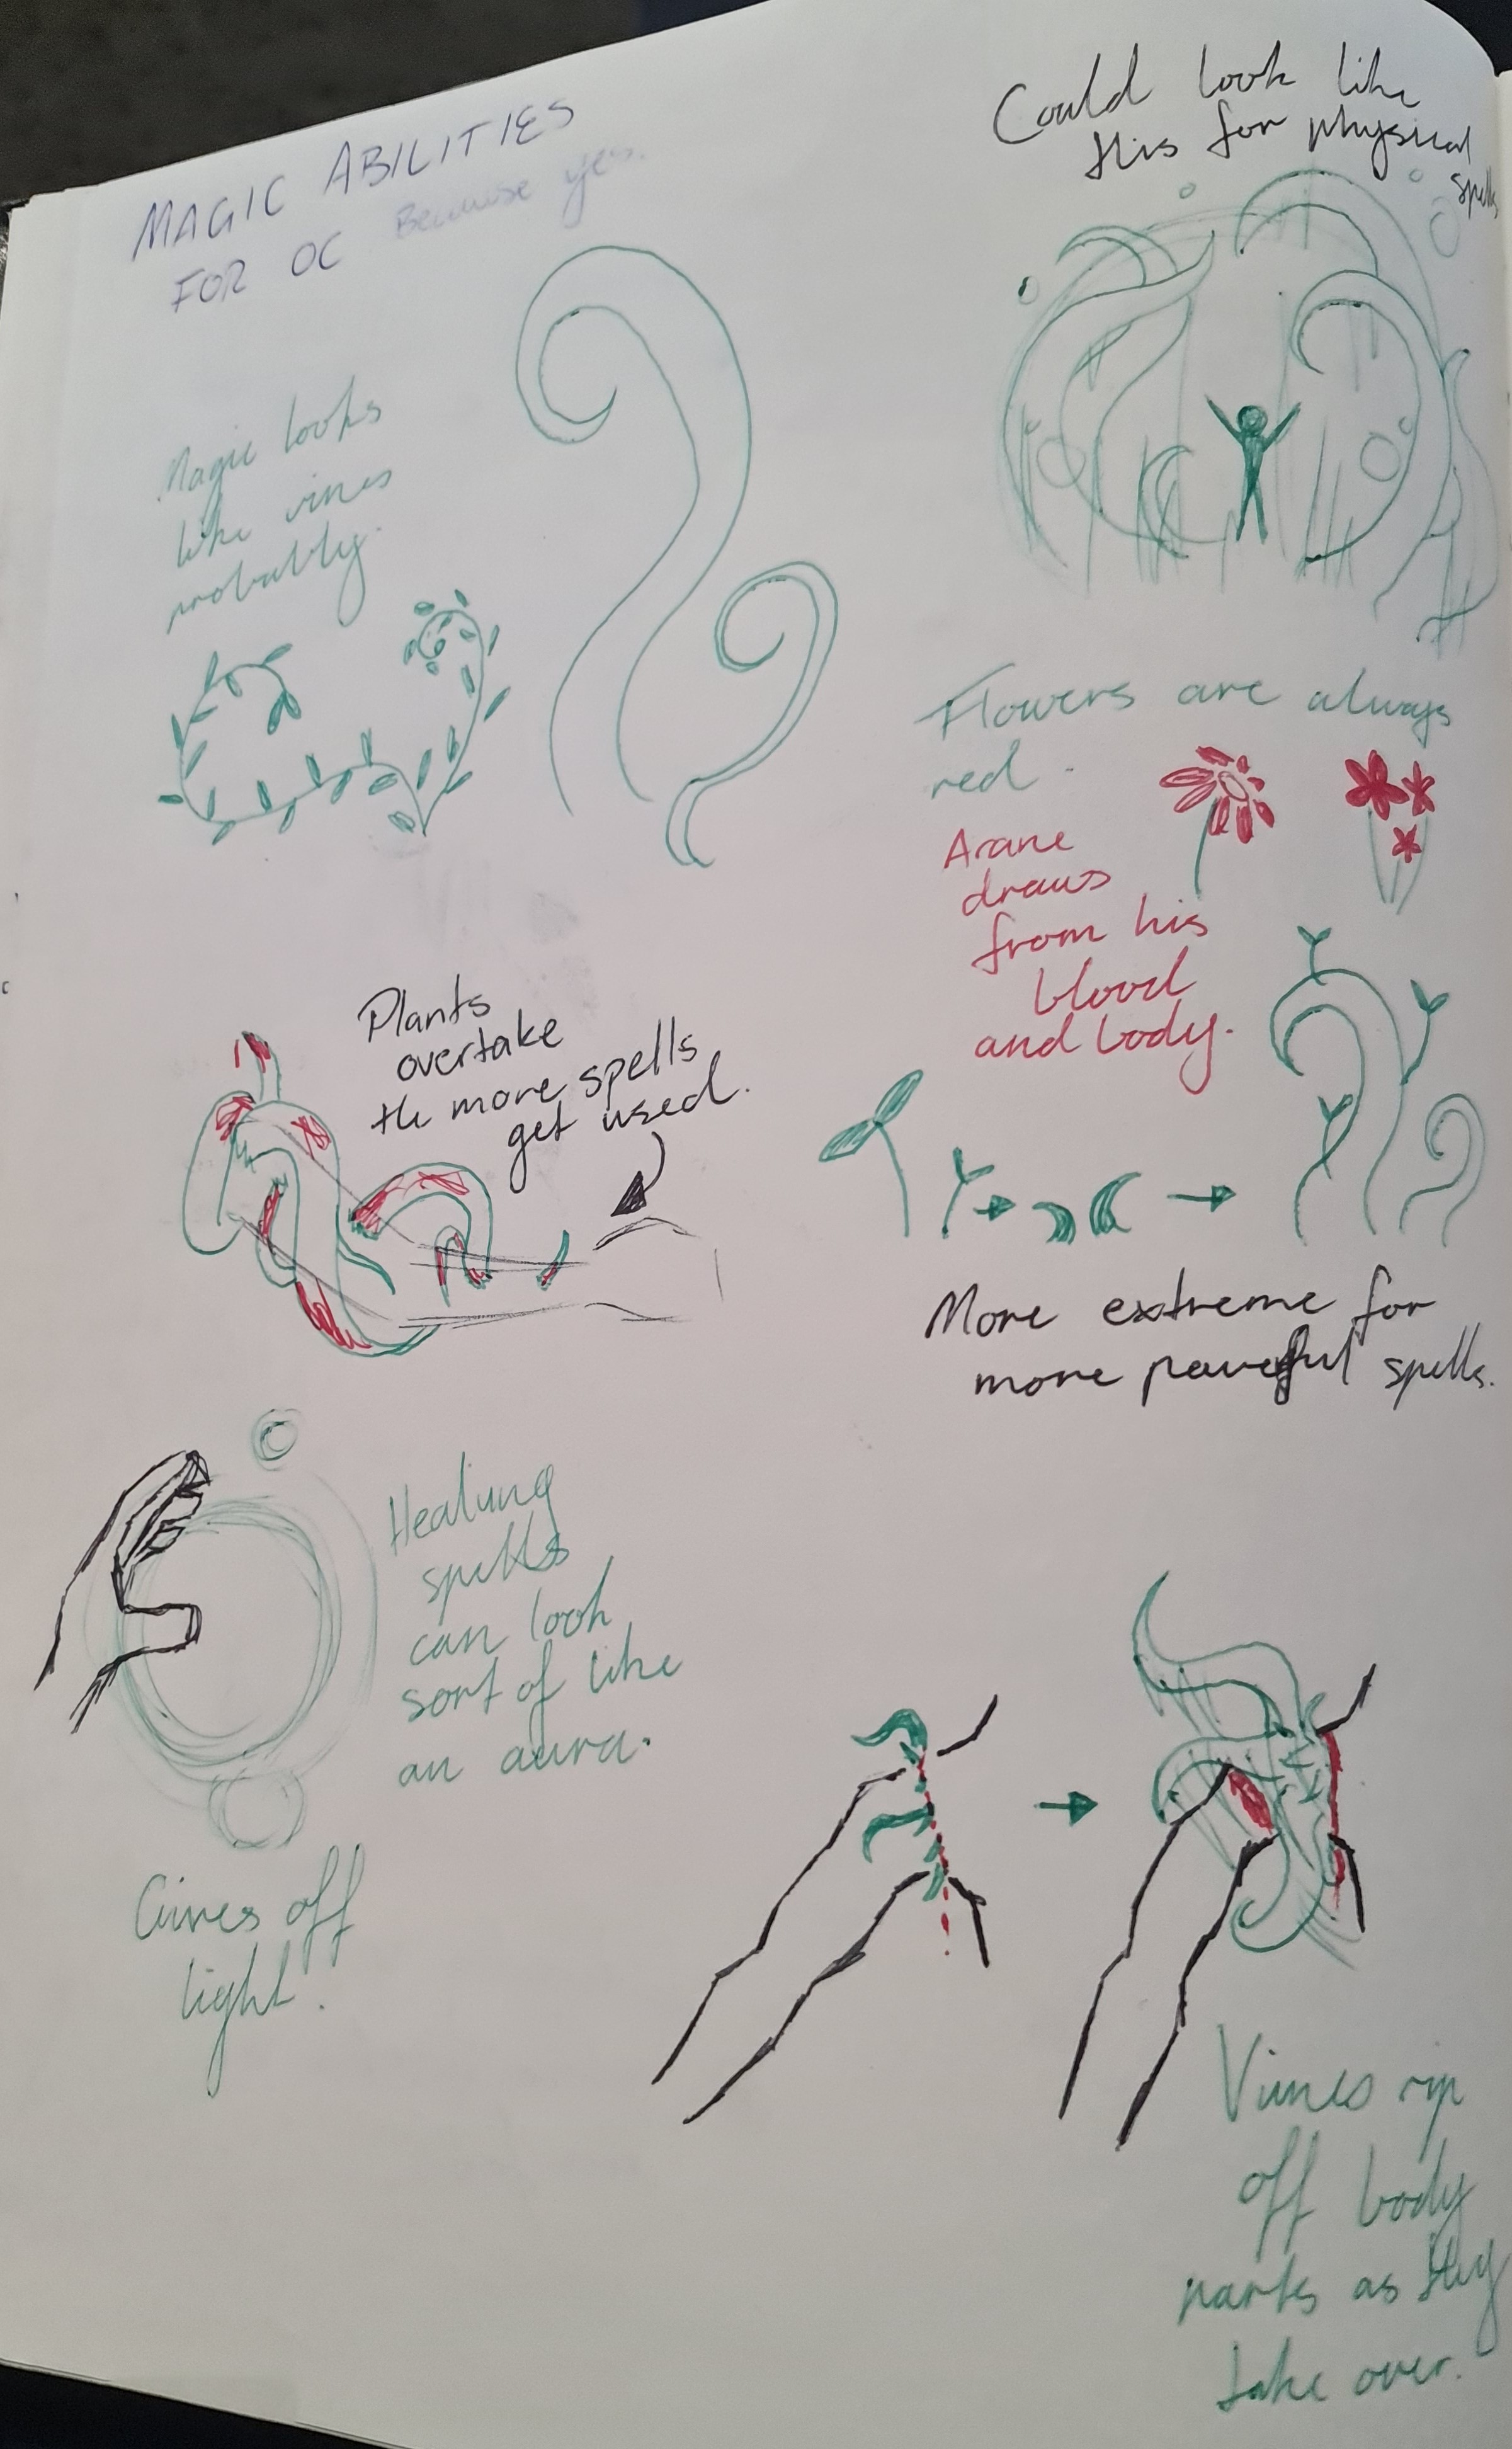 MAGIC ABILITIES
FOR OC Because yes.
Could look like
this for physical
spells
Magic looks
like vines
probably.
Flowers are always
red.
Arane
draws
from his
blood
and body.
Plants
overtake
the more spells
get used.
More extreme for
more powerful spells.
Healing
spells
can look
sort of like
an aura.
Gives off
light.
Vines rip
off body
parts as they
take over.